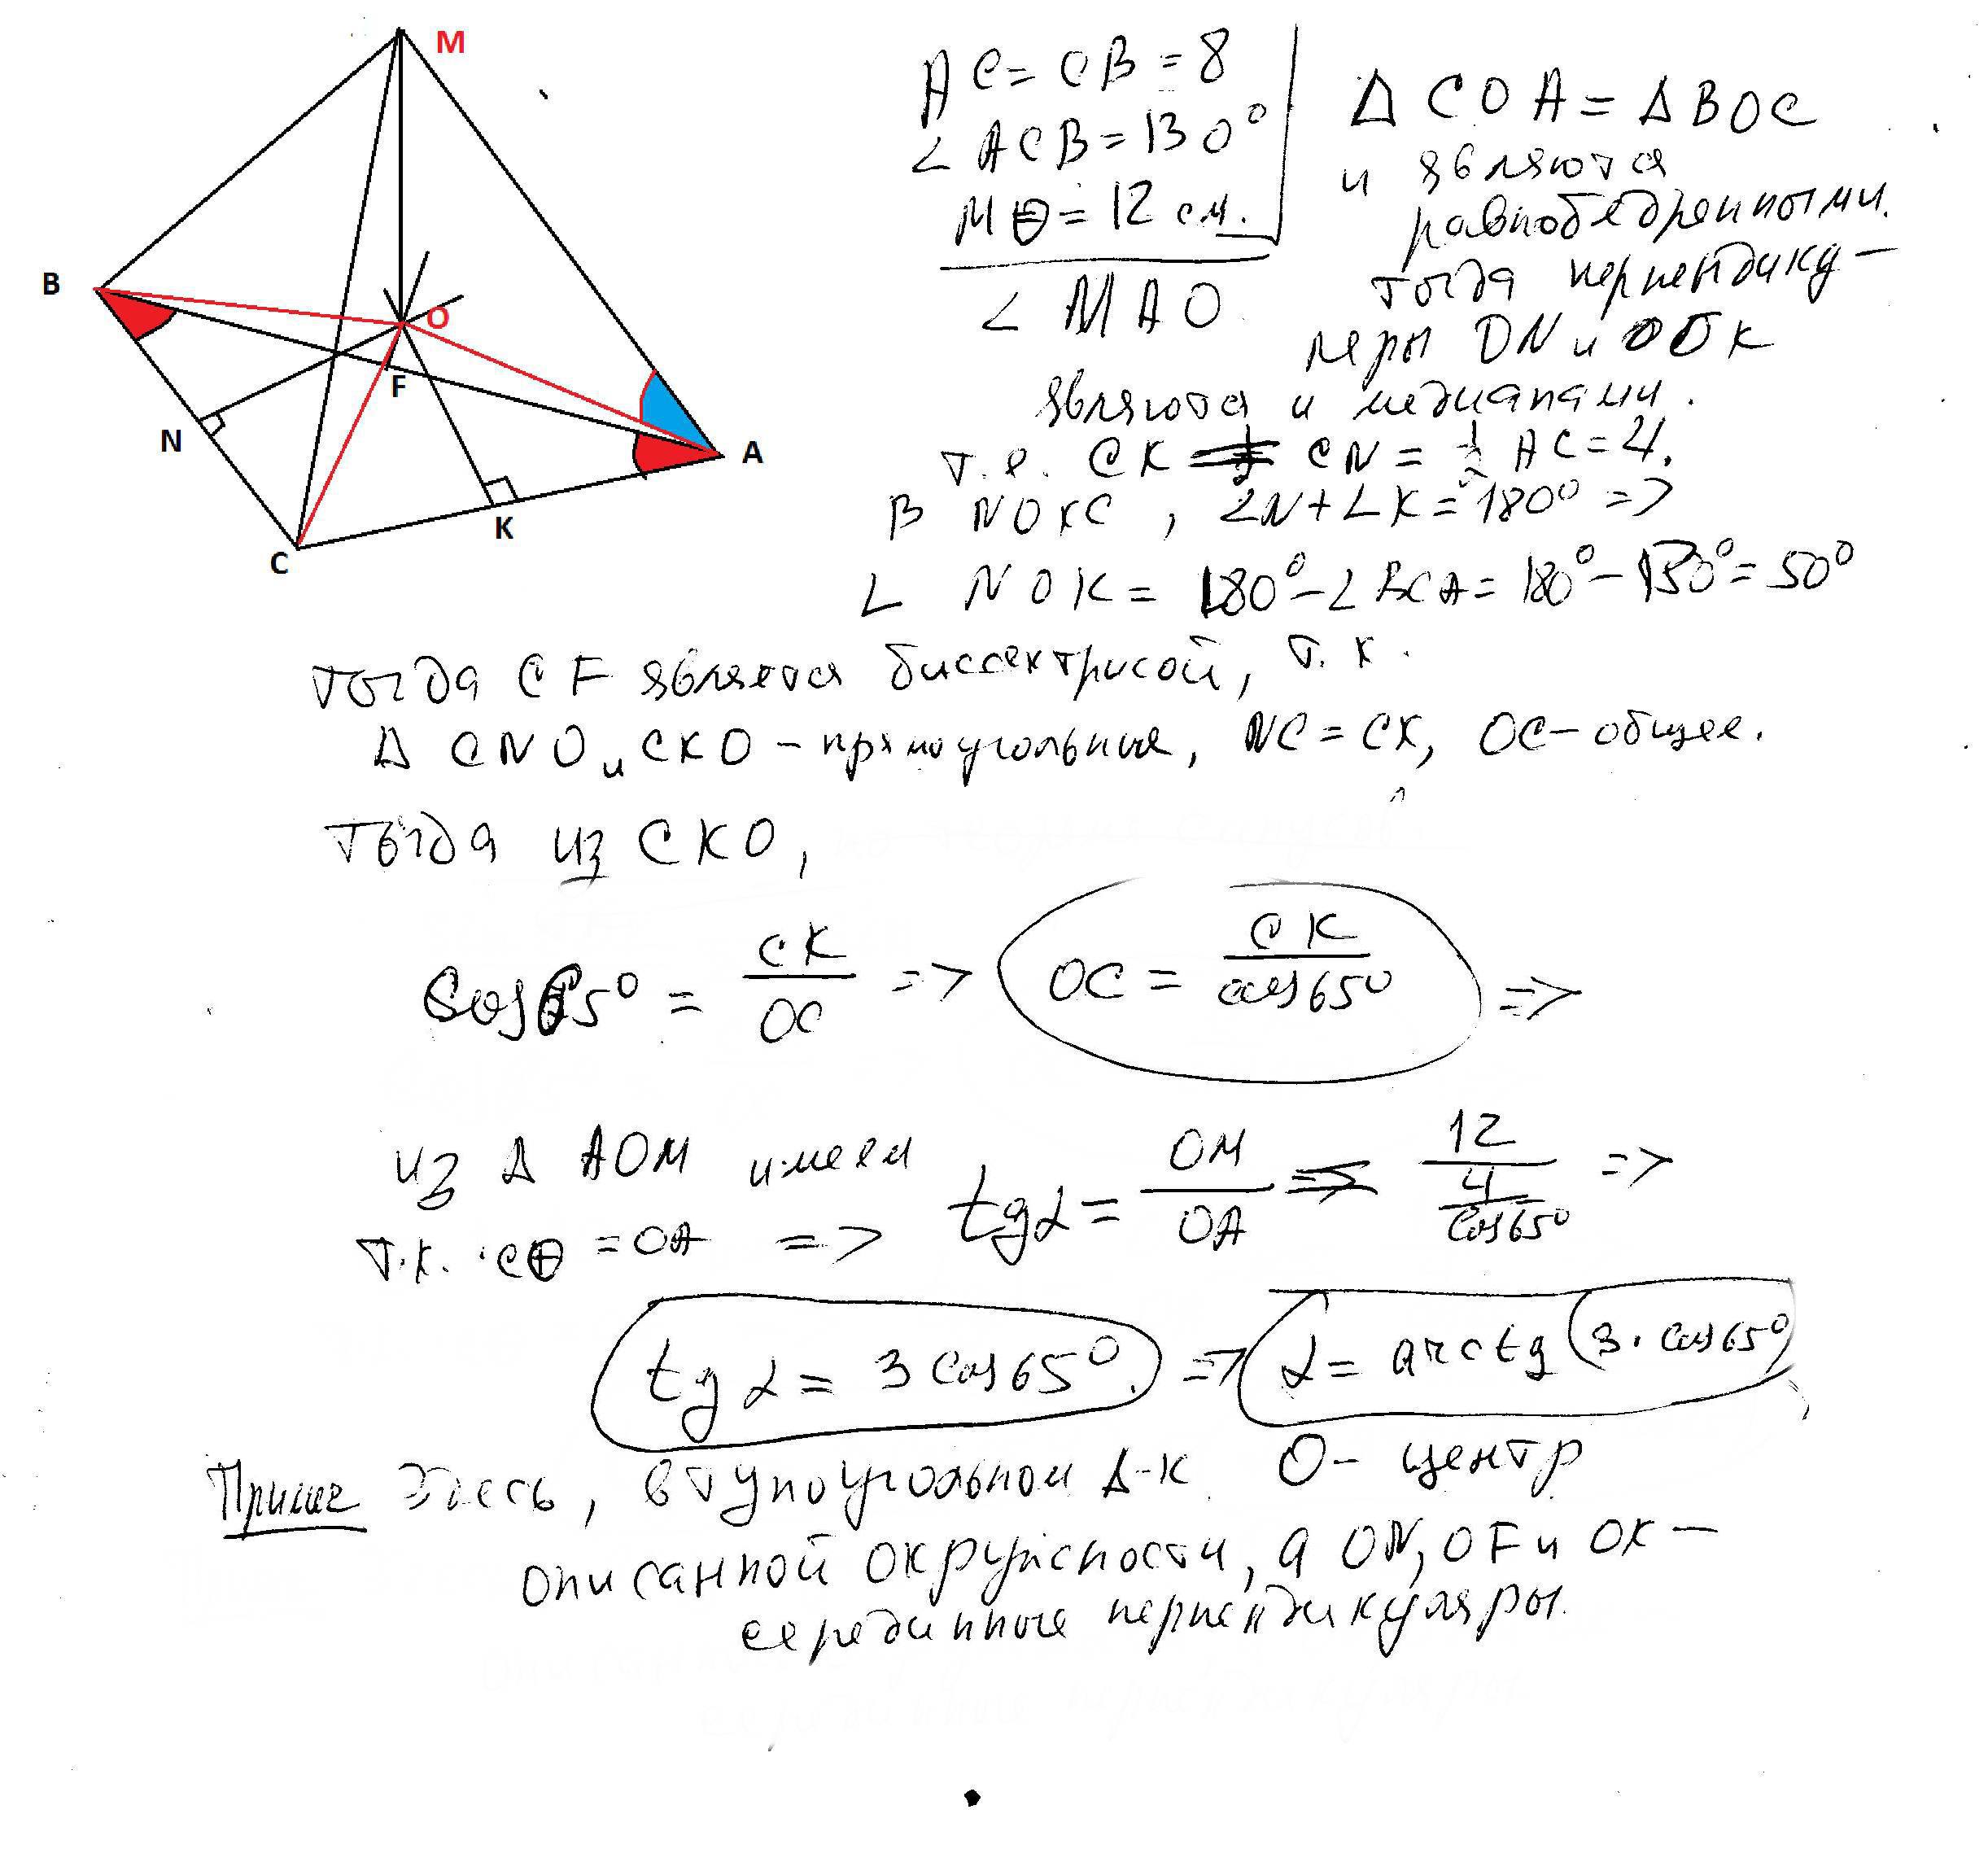 M
B
O
F
N
A
K
C
AC = CB = 8
∠ ACB = 130°
MO = 12 см.
∠ MAO
Δ COA = Δ BOC
и являются
равнобедренными.
тогда перпендику-
ляры ON и OK
являются и медианами.
т.е. CK = CN = 1/2 AC = 4.
В NOKC, ∠N + ∠K = 180° =>
∠ NOK = 180° - ∠BCA = 180° - 130° = 50°
тогда CF является биссектрисой, т.к.
Δ CNO и CKO - прямоугольные, NC = CK, OC - общее.
Тогда из CKO,
cos 65° = CK/OC => OC = CK/cos65° =>
из Δ AOM имеем tgα = OM/OA = 12/(4/cos65°) =>
т.к. CO = OA =>
tgα = 3cos65°. => α = arctg(3·cos65°)
Примеч Здесь, в тупоугольном Δ-к O - центр
описанной окружности, а ON, OF и OK -
серединные перпендикуляры.